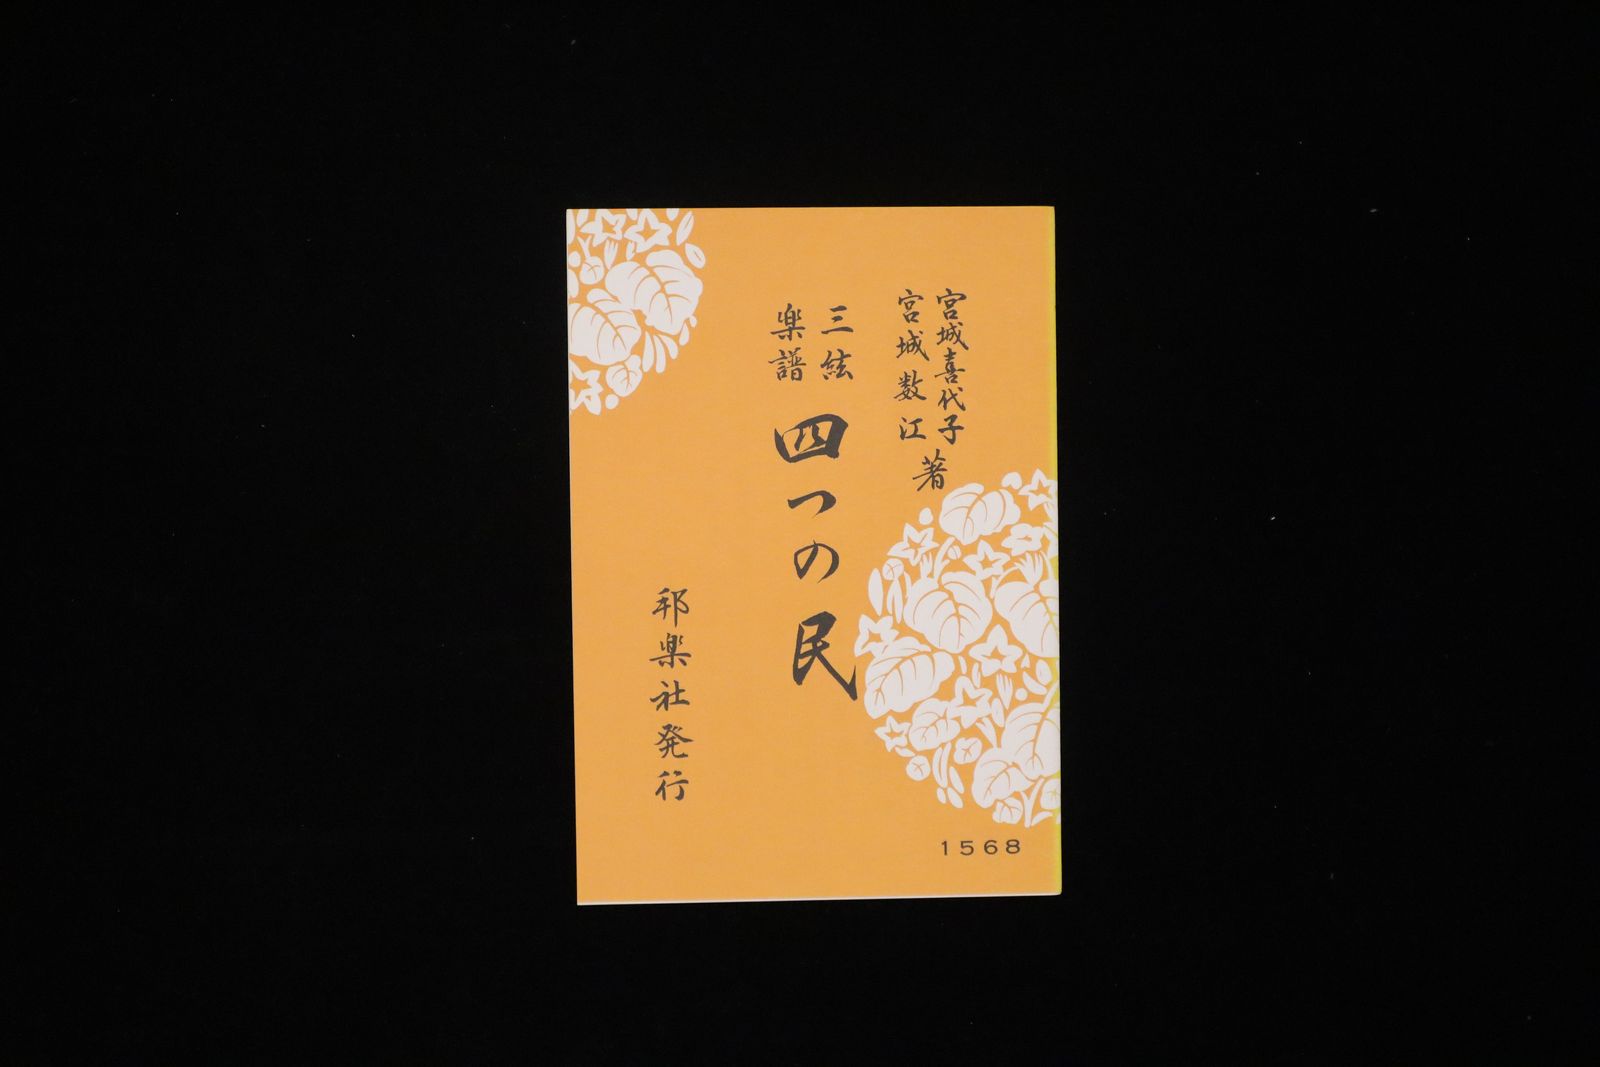 宮城喜代子
宮城数江
著
三絃
楽譜
四つの民
邦楽社発行
1568